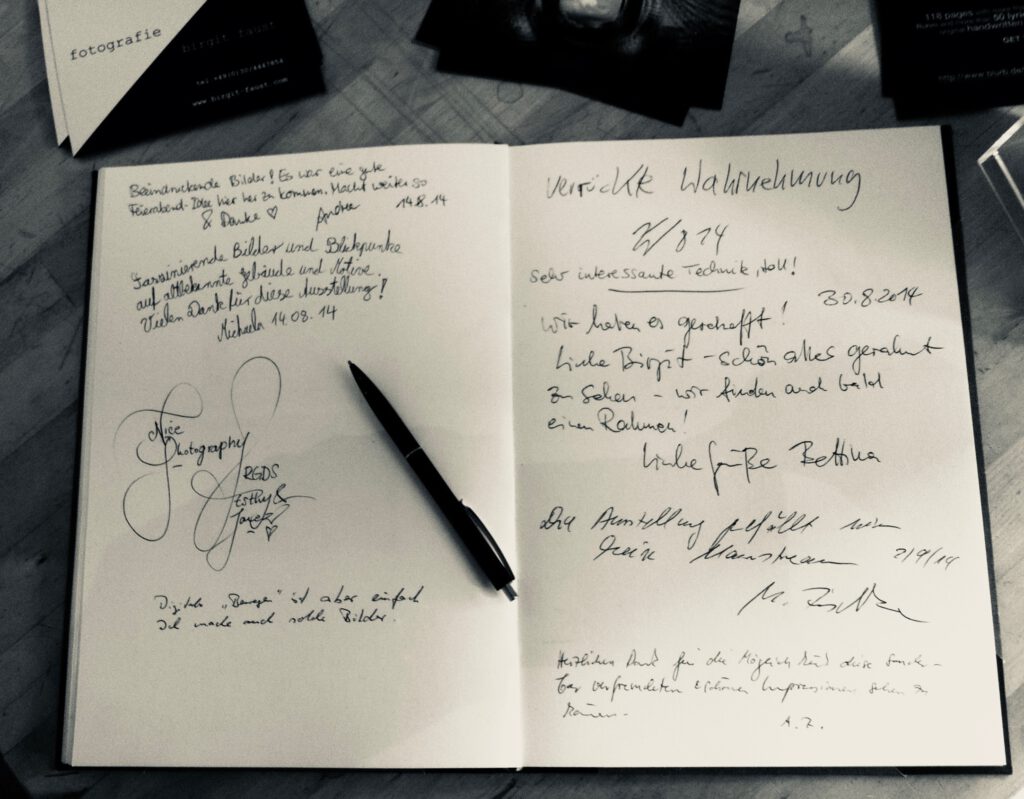 fotografie
birgit faust
www.birgit-faust.com
118 pages
50 lyri
handwritten
GET
http://www.blurb.de
Beeindruckende Bilder! Es war eine gute
Feierabend-Idee hier her zu kommen. Macht weiter so
& Danke ♡ Andrea 14.8.14
Faszinierende Bilder und Blickpunkte
auf altbekannte Gebäude und Motive.
Vielen Dank für diese Ausstellung!
Michaela 14.08.14
Nice
Photography
RGDS
Esthy &
♡
"Bewegen" ist aber einfach
Ich mache auch solche Bilder.
Verrückte Wahrnehmung
8 14
Sehr interessante Technik, toll!
30.8.2014
Wir haben es geschafft!
Liebe Birgit – schön alles gerahmt
zu sehen – wir finden auch bald
einen Rahmen!
Liebe Grüße Bettina
Die Ausstellung gefällt mir
keine Mainstream 2/9/14
M.
Herzlichen Dank für die Möglichkeit diese
verfremdeten & schönen Impressionen sehen zu
können.
A. Z.